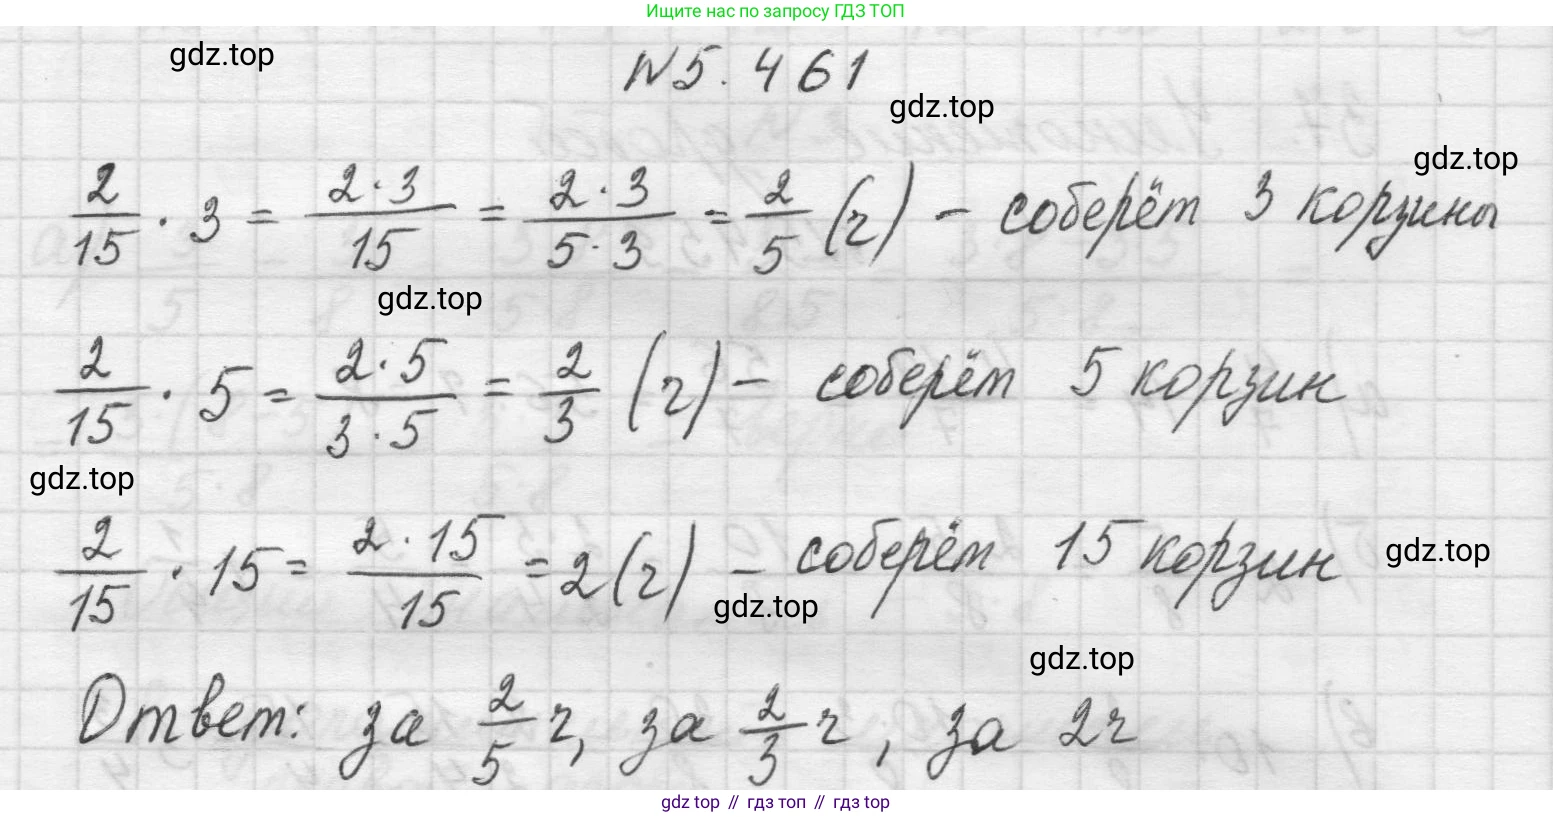 Ищите нас по запросу ГДЗ ТОП
gdz.top
N5.461
gdz.top
gdz.top
2/15 · 3 = 2·3/15 = 2·3/5·3 = 2/5 (ч) – соберёт 3 корзины
gdz.top
2/15 · 5 = 2·5/3·5 = 2/3 (ч) – соберём 5 корзин
gdz.top
2/15 · 15 = 2·15/15 = 2 (ч) – соберём 15 корзин
gdz.top
gdz.top
gdz.top
Ответ: за 2/5 ч, за 2/3 ч, за 2ч
gdz top // гдз топ // гдз top